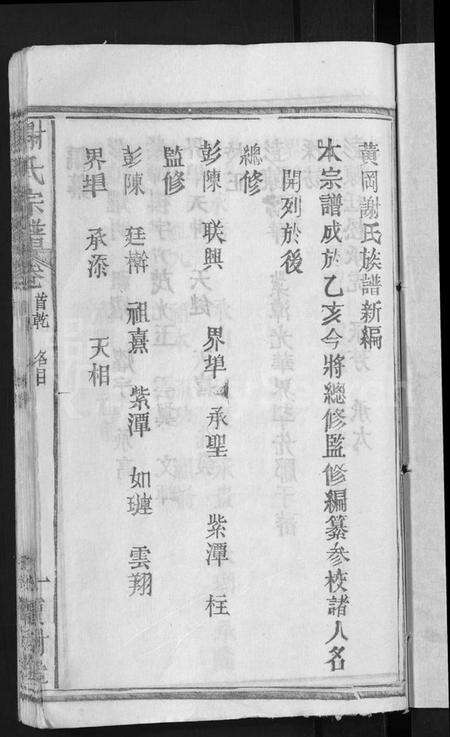 黃岡謝氏族譜新編
本宗譜成於乙亥今將總修監修編纂參校諸人名
開列於後
總修
彭陳 联興 界埠 承聖 紫潭 柱
監修
彭陳 廷樹 祖熹 紫潭 如璉 雲翔
界埠 承添 天相
謝氏宗譜 卷首乾 名目 一